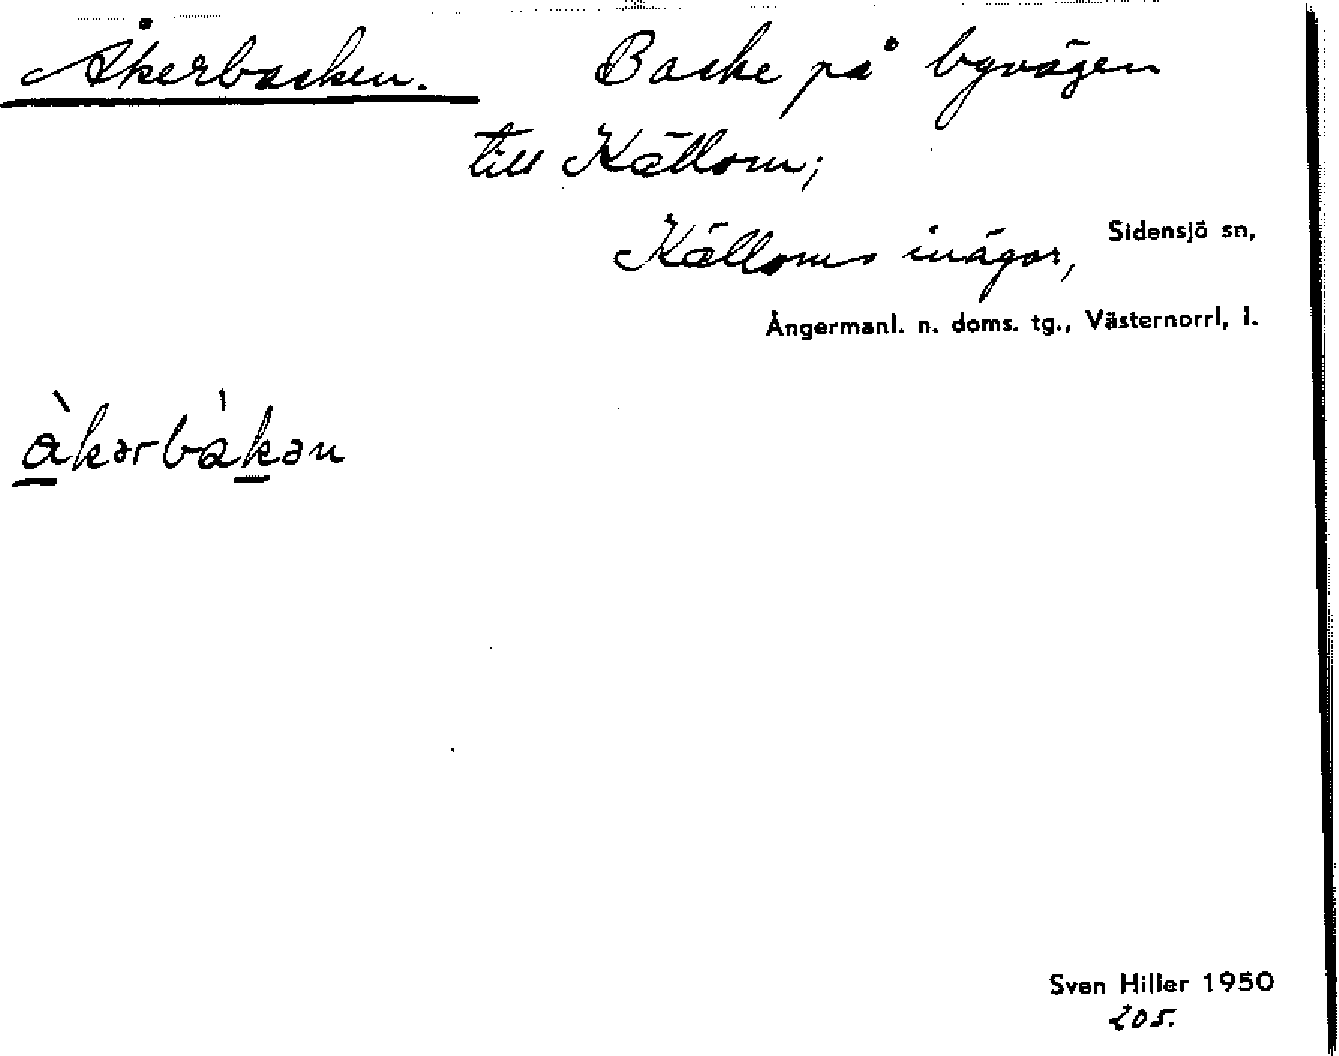 Åkerbacken. Backe på byvägen
till Källom;
Källoms inägor, Sidensjö sn,
Ångermanl. n. doms. tg., Västernorrl, l.
àkərbákən
Sven Hiller 1950
205.